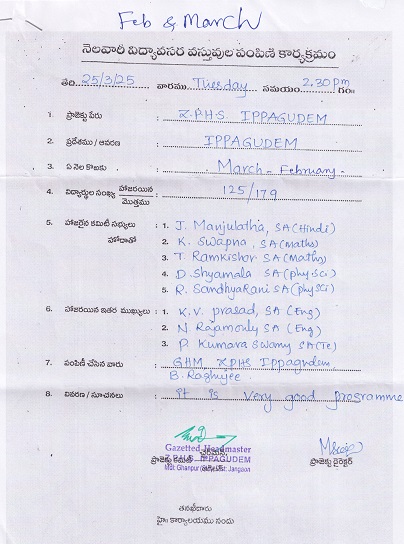 Feb & March
నెలవారీ విద్యావసర వస్తువుల పంపిణీ కార్యక్రమం
తేది 25/3/25 వారము Tuesday సమయం 2.30pm గం॥
1. ప్రాజెక్టు పేరు : Z.P.H.S. IPPAGUDEM
2. ప్రదేశము / ఆవరణ : IPPAGUDEM
3. ఏ నెల కొఱకు : March - February -
4. విద్యార్థుల సంఖ్య హాజరయిన/మొత్తము : 125/179
5. హాజరైన కమిటీ సభ్యులు : 1. J. Manjulatha, SA (Hindi)
హోదాతో 2. K. Swapna, SA (Maths)
3. T. Ramkishor SA (Maths)
4. D. Shyamala SA (phy.sci)
5. R. SandhyaRani SA (phy sci)
6. హాజరయిన ఇతర ముఖ్యులు : 1. K.V. prasad, SA (Eng)
2. N Rajamouly SA (Eng)
3. P. Kumara Swamy SA (Te)
7. పంపిణీ చేసిన వారు : GHM ZPHS Ippagudem
B. Raghujee.
8. వివరణ / సూచనలు : it is very good programme
Gazetted Headmaster
ప్రాజెక్టు కమిటీ IPPAGUDEM ప్రాజెక్టు డైరెక్టర్
Mdl: Ghanpur Dist: Jangaon
తనఖీదారు
హై॥ కార్యాలయము నందు